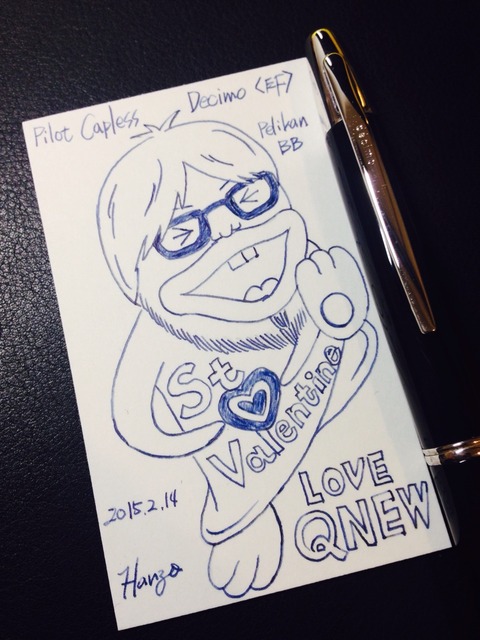 Pilot Capless
Decimo <EF>
Pelikan
BB
St
Valentine
2015.2.14
LOVE
QNEW
Hanzo